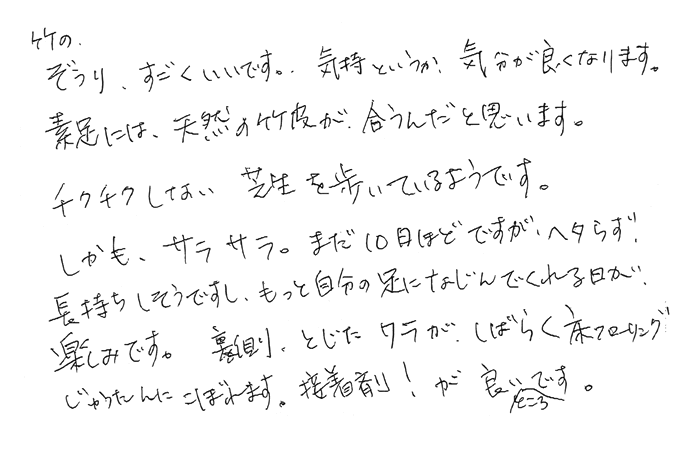 竹の
ぞうり、すごくいいです。気持というか、気分が良くなります。
素足には、天然の竹皮が、合うんだと思います。
チクチクしない 芝生を歩いているようです。
しかも、サラサラ。まだ10日ほどですが、ヘタらず、
長持ちしそうですし、もっと自分の足になじんでくれる日が、
楽しみです。裏側、とじたワラが、しばらく床フローリング
じゅうたんにこぼれます。接着剤！が良いです。
ところ